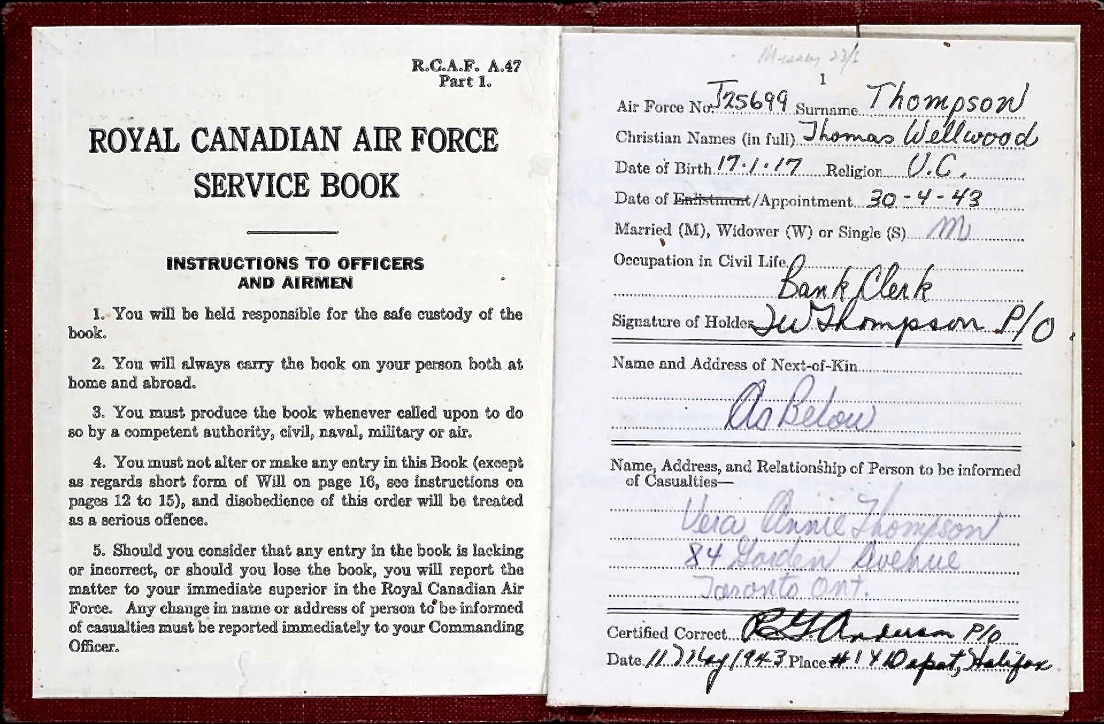 R.C.A.F. A.47
Part 1.
ROYAL CANADIAN AIR FORCE
SERVICE BOOK
INSTRUCTIONS TO OFFICERS
AND AIRMEN
1. You will be held responsible for the safe custody of the
book.
2. You will always carry the book on your person both at
home and abroad.
3. You must produce the book whenever called upon to do
so by a competent authority, civil, naval, military or air.
4. You must not alter or make any entry in this Book (except
as regards short form of Will on page 16, see instructions on
pages 12 to 15), and disobedience of this order will be treated
as a serious offence.
5. Should you consider that any entry in the book is lacking
or incorrect, or should you lose the book, you will report the
matter to your immediate superior in the Royal Canadian Air
Force. Any change in name or address of person to be informed
of casualties must be reported immediately to your Commanding
Officer.
1
Air Force No. J25699 Surname Thompson
Christian Names (in full) Thomas Wellwood
Date of Birth 17.1.17 Religion U.C.
Date of Enlistment/Appointment 30-4-43
Married (M), Widower (W) or Single (S) M
Occupation in Civil Life
Bank Clerk
Signature of Holder TW Thompson P/O.
Name and Address of Next-of-Kin
As Below
Name, Address, and Relationship of Person to be informed
of Casualties—
Vera Annie Thompson
84 Garden Avenue
Toronto Ont.
Certified Correct RG Anderson P/O
Date 11 May 1943 Place #1 Y Depot, Halifax